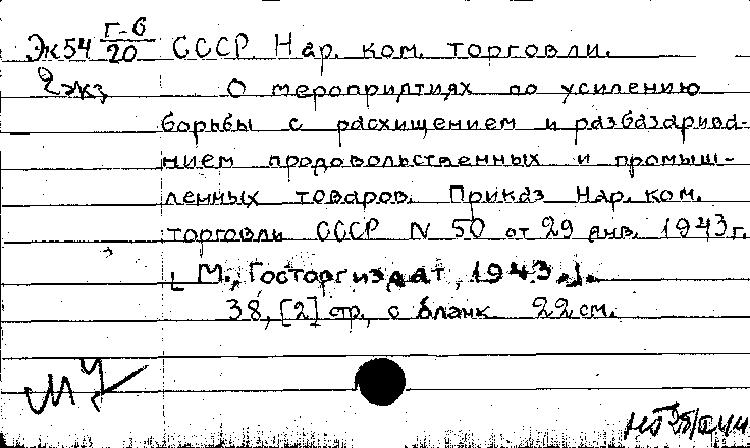 Эк54 Г-6/20 СССР Нар. ком. торговли.
2экз О мероприятиях по усилению
борьбы с расхищением и разбазарива-
нием продовольственных и промыш-
ленных товаров. Приказ Нар. ком.
торговли СССР N 50 от 29 янв. 1943 г.
[М., Госторгиздат, 1943].
38, [2] стр., с бланк. 22 см.